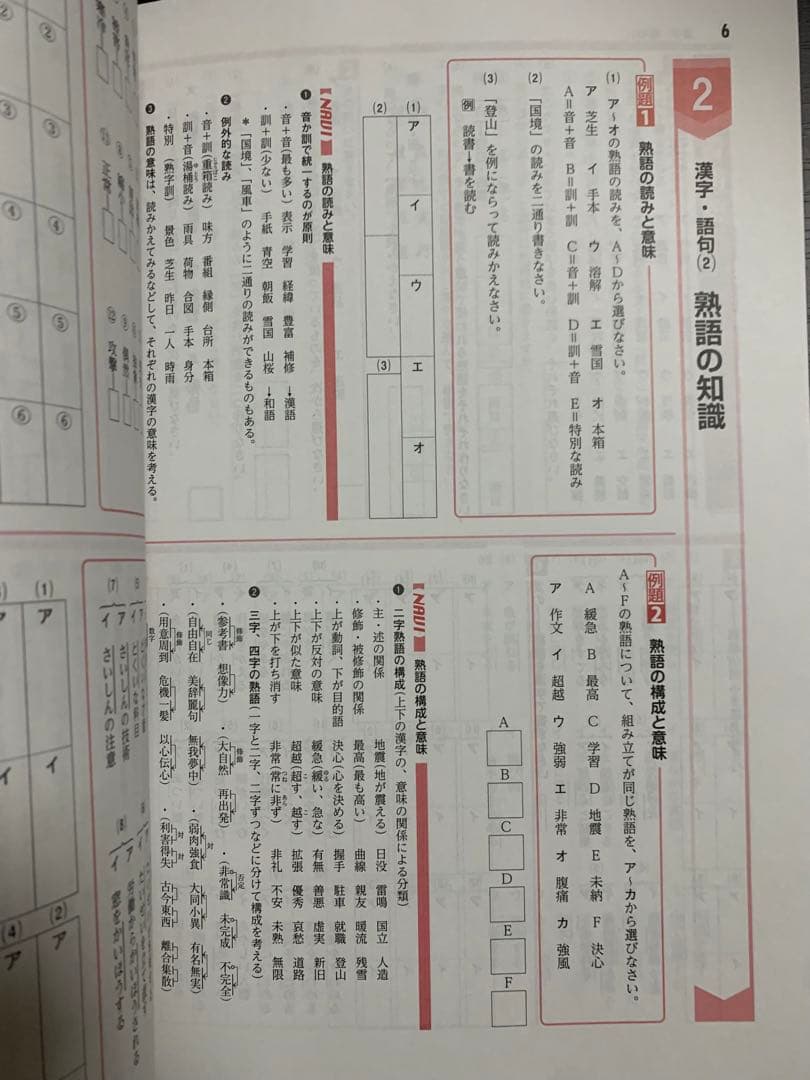 6
2 漢字・語句(2) 熟語の知識
例題1 熟語の読みと意味
(1) ア〜オの熟語の読みを、A〜Dから選びなさい。
ア 芝生 イ 手本 ウ 溶解 エ 雪国 オ 本箱
A=音+音 B=訓+訓 C=音+訓 D=訓+音 E=特別な読み
(2) 「国境」の読みを二通り書きなさい。
(3) 「登山」を例にならって読みかえなさい。
例 読書→書を読む
(1) ア イ ウ エ オ
(2) (3)
NAVI 熟語の読みと意味
❶ 音か訓で統一するのが原則
・音+音(最も多い) 表示 学習 経緯 豊富 補修 →漢語
・訓+訓(少ない) 手紙 青空 朝飯 雪国 山桜 →和語
*「国境」、「風車」のように二通りの読みができるものもある。
❷ 例外的な読み
・音+訓(重箱読み) 味方 番組 縁側 台所 本箱
・訓+音(湯桶読み) 雨具 荷物 合図 手本 身分
・特別 (熟字訓) 景色 芝生 昨日 一人 時雨
❸ 熟語の意味は、読みかえてみるなどして、それぞれの漢字の意味を考える。
例題2 熟語の構成と意味
A〜Fの熟語について、組み立てが同じ熟語を、ア〜カから選びなさい。
A 緩急 B 最高 C 学習 D 地震 E 未納 F 決心
ア 作文 イ 超越 ウ 強弱 エ 非常 オ 腹痛 カ 強風
A B C D E F
NAVI 熟語の構成と意味
❶ 二字熟語の構成(上下の漢字の、意味の関係による分類)
・主・述の関係 地震(地が震える) 日没 雷鳴 国立 人造
・修飾・被修飾の関係 最高(最も高い) 親友 暖流 残雪
・上が動詞、下が目的語 決心(心を決める) 握手 駐車 就職 登山
・上下が反対の意味 緩急(緩い、急な) 有無 善悪 虚実 新旧
・上下が似た意味 超越(超す、越す) 拡張 優秀 哀愁 道路
・上が下を打ち消す 非常(常に非ず) 非礼 不安 未熟 無限
❷ 三字、四字の熟語(一字と二字、二字ずつなどに分けて構成を考える)
・(参考書 想像力) ・(大自然 再出発) ・(非常識 未完成 不完全)
・(自由自在 美辞麗句 無我夢中) ・(弱肉強食 大同小異 有名無実)
・(用意周到 危機一髪 以心伝心) ・(利害得失 古今東西 離合集散)
(7) ア さいしんの技術
イ さいしんの注意